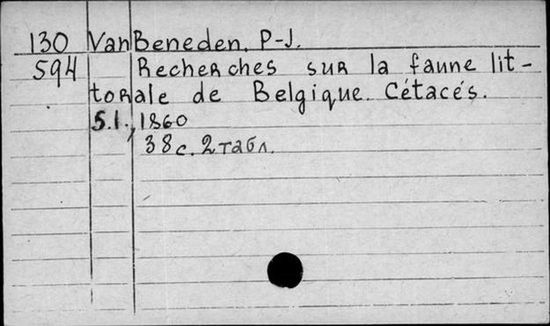 130 Van Beneden, P-J.
594 Recherches sur la faune lit-
torale de Belgique. Cétacés.
S.l., 1860
38 с. 2 табл.